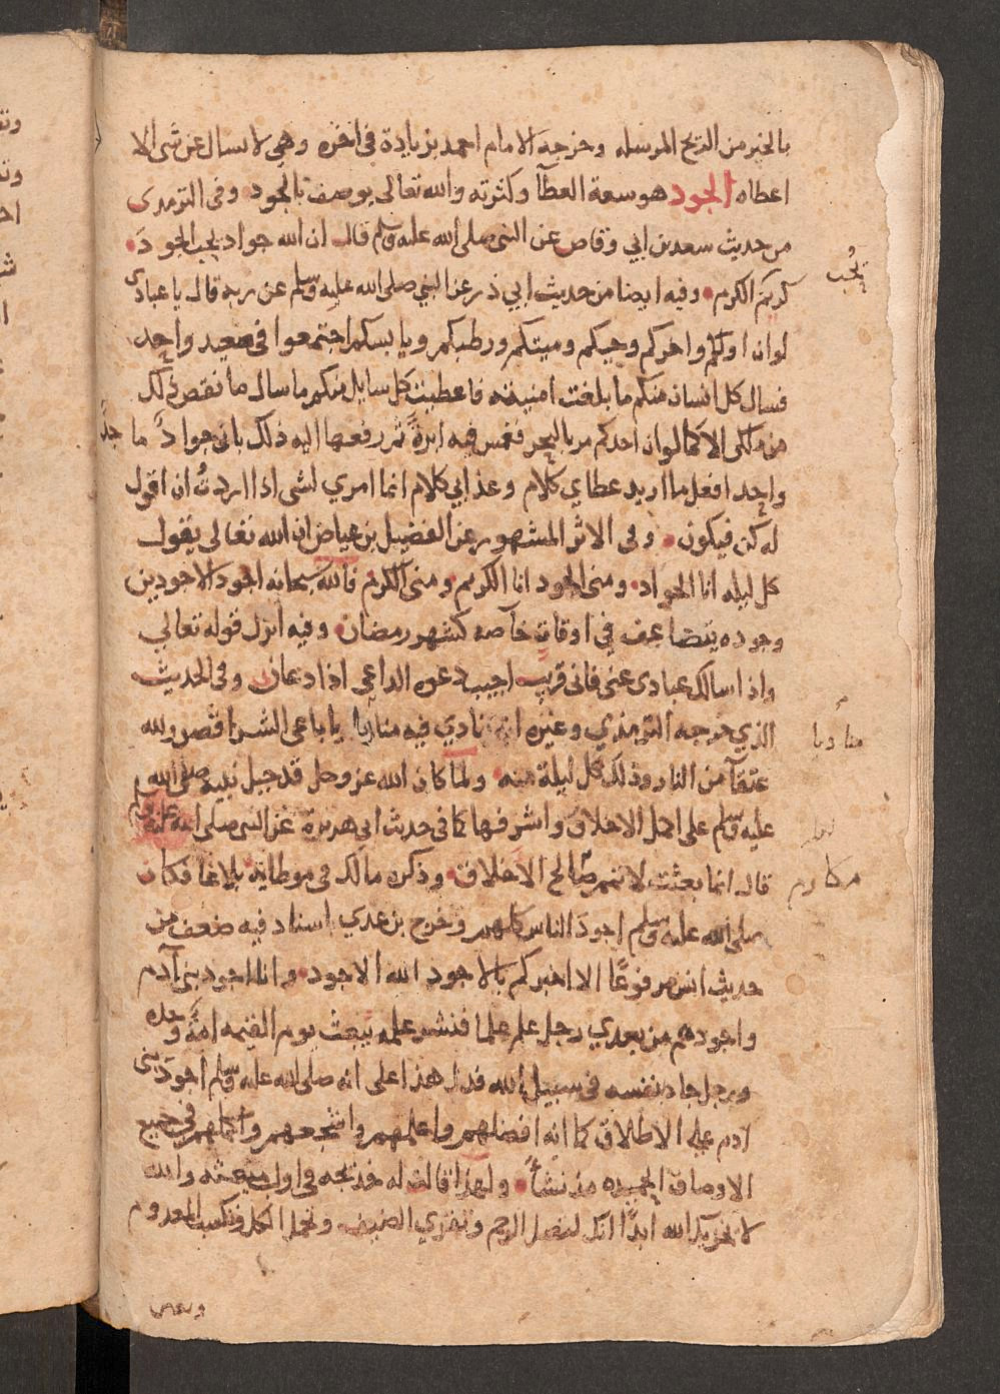 بالخير من الريح المرسله وخرجه الامام احمد بزيادة في اخره وهي لا يسال عن شي الا
اعطاه الجود هو سعة العطآ وكثرته والله تعالى يوصف بالجود وفي الترمدى
من حديث سعد بن ابي وقاص عن النبى صلى الله عليه وسلم قال ان الله جواد يحب الجود
يحب
كريم الكرم وفيه ايضا من حديث ابي ذر عن النبي صلى الله عليه وسلم عن ربه قال يا عبادى
لو ان اولكم واخركم وحيكم وميتكم ورطبكم ويابسكم اجتمعوا في صعيد واحد
فسال كل انسان منكم ما بلغت امنيته فاعطيت كل سايل منكم ما سال ما نقص ذلك
من ملكى الا كما لو ان احدكم مر بالبحر فغمس فيه ابرةً ثم رفعها اليه ذلك باني جوادٌ ما جدٌ
واحد افعل ما اريد عطاي كلام وعذابي كلام انما امري لشى اذا اردتُ ان اقول
له كن فيكون وفى الاثر المشهور عن الفضيل بن عياض ان الله تعالى يقول
كل ليله انا الجواد ومنى الجود انا الكريم ومنى الكرم فالله سبحانه اجود الاجودين
وجوده يتضاعف في اوقاتٍ خآصه كشهر رمضان وفيه انزل قوله تعالي
واذا سالك عبادى عنى فانى قريب اجيب دعوه الداعي اذا دعان وفى الحديث
الذي خرجه الترمذي وغيره انه ينادي فيه مناديا يا باعى الشر اقصر ولله
مناديا
عتقآ من النار وذلك كل ليلة منه ولما كان الله عز وجل قد جبل نبيه صلى الله
عليه وسلم على اجمل الاخلاق واشرفها كما فى حديث ابي هريرة عن النبى صلى الله عليه وسلم
قال انما بعثت لاتمم صالح الاخلاق وذكره مالك في موطايه بلاغا فكان
مكارم
صلى الله عليه وسلم اجود الناس كلهم وخرج بن عدي باسناد فيه ضعف من
حديث انس مرفوعًا الا اخبركم بالاجود الله الاجود وانا اجود بنى آدم
واجودهم من بعدي رجل علم علما فنشر علمه يبعث يوم القيمه امةً وحده
ورجل جاد بنفسه في سبيل الله فدل هذا على انه صلى الله عليه وسلم اجود بنى
آدم على الاطلاق كما انه افضلهم واعلمهم واشجعهم واكملهم في جميع
الاوصاف الحميده مذ نشأ ولهذا قالت له خديجه في اول مبعثه والله
لا يخزيك الله ابدًا انك لتصل الرحم وتقري الضيف وتحمل الكل وتكسب المعدوم
وتعين